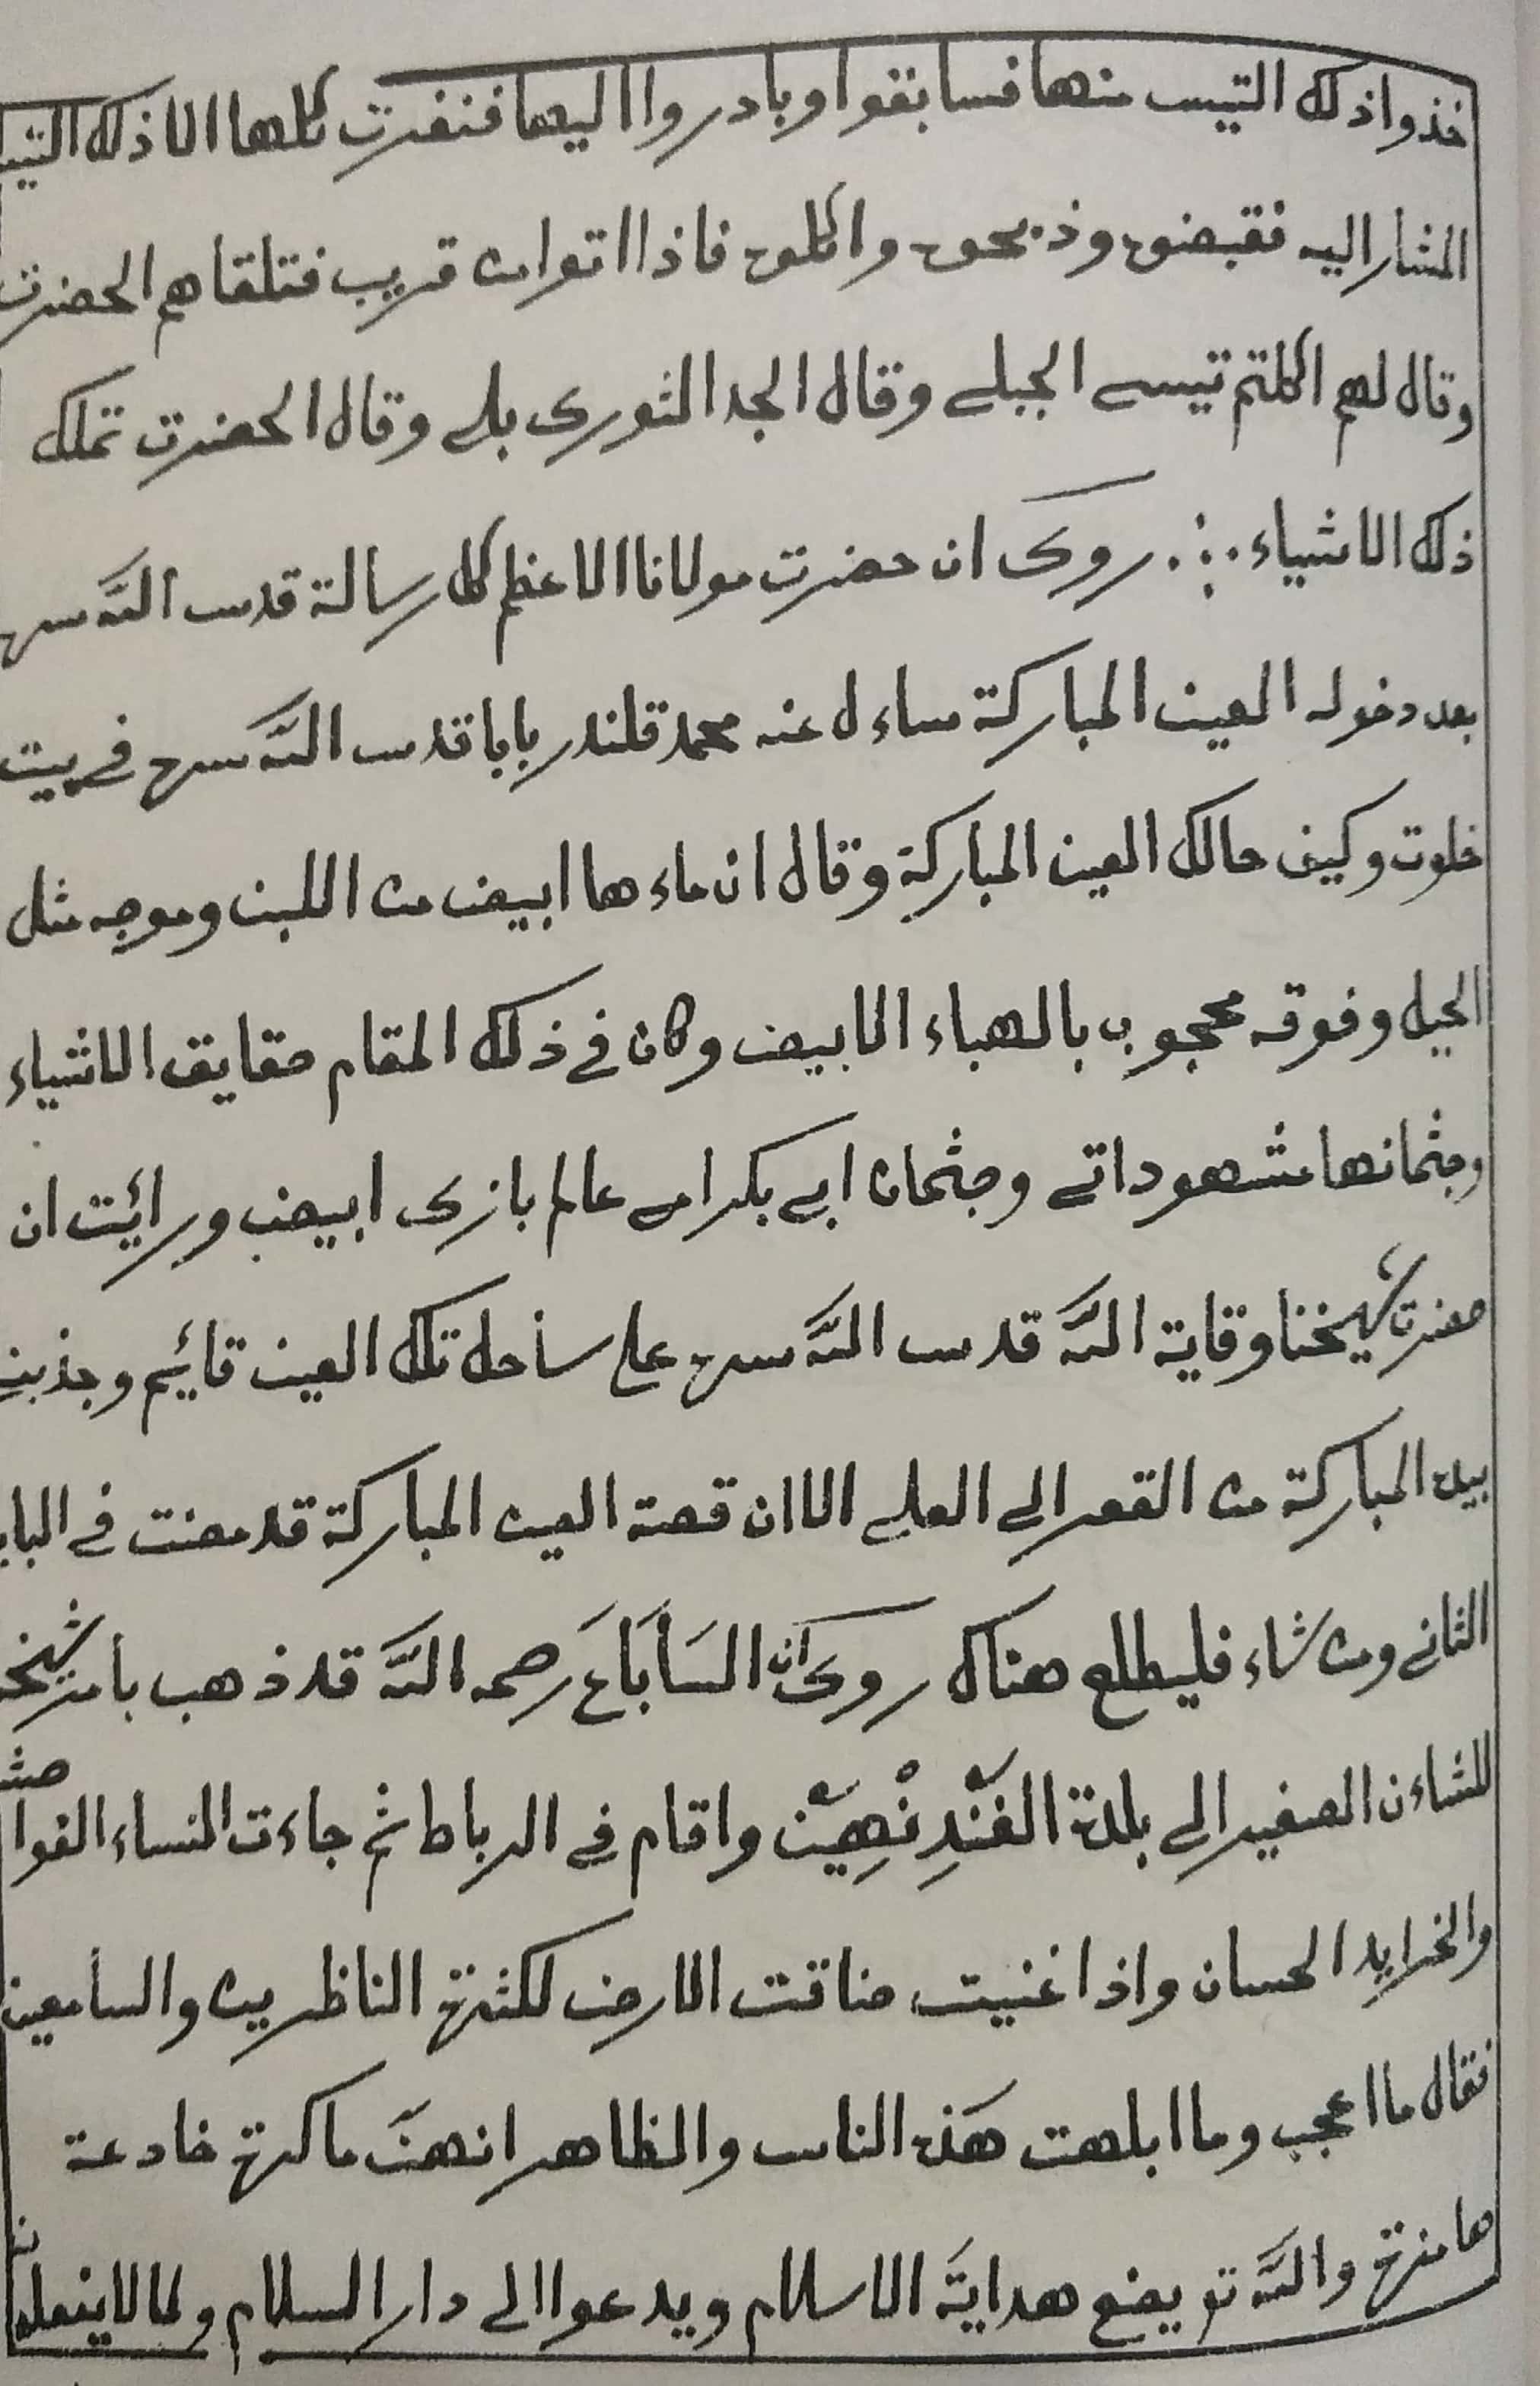 خذوا ذلك التيس منها فسابقوا وبادروا اليها فنفرت كلها الا ذلك التيس
المشار اليه فقبضوه وذبحوه واكلوه فاذا اتوا من قريب فتلقاهم الحضرت
وقال لهم اكلتم تيسى الجبلے وقال الجد الثورى بلے وقال الحضرت تملك
ذلك الاشياء ∴ روى ان حضرت مولانا الاعظم كل رسالة قدس الله سره
بعد دخوله العين المباركة ساءل عنه محمد قلندر بابا قدس الله سره فے بيت
خلوت وكيف حالك العين المباركة وقال ان ماءها ابيض من اللبن وموجه مثل
الجبل وفوقه محجوب بالهباء الابيض وكان فے ذلك المقام حقايق الاشياء
وجثمانها مشهوداتے وجثمان ابے بكر امے عالم بازى ابيض ورائيت ان
حضرت شيخنا وقاية الله قدس الله سره على ساحل تلك العين قائيم وجذبنے
بيده المباركة من القعر الى العلے الا ان قصة العين المباركة قد مضت فے الباب
الثانے ومن شاء فليطلع هناك روى ان السَابَاعَ رحمه الله قد ذهب بامر شيخه
للشاءن الصغير الى بلدة الغَنْدِنْهِيَنْ واقام فے الرباط ثم جاءت النساء الفواحش
والخرايد الحسان واذا غنيت ضاقت الارض لكثرة الناظرين والسامعين
فقال ما اعجب وما ابلهت هَذه الناس والظاهر انهنَ ماكرة خادعة
هامزة والله تو يضع هدايةَ الاسلام ويدعوا الى دار السلام ولما لا ينعلون